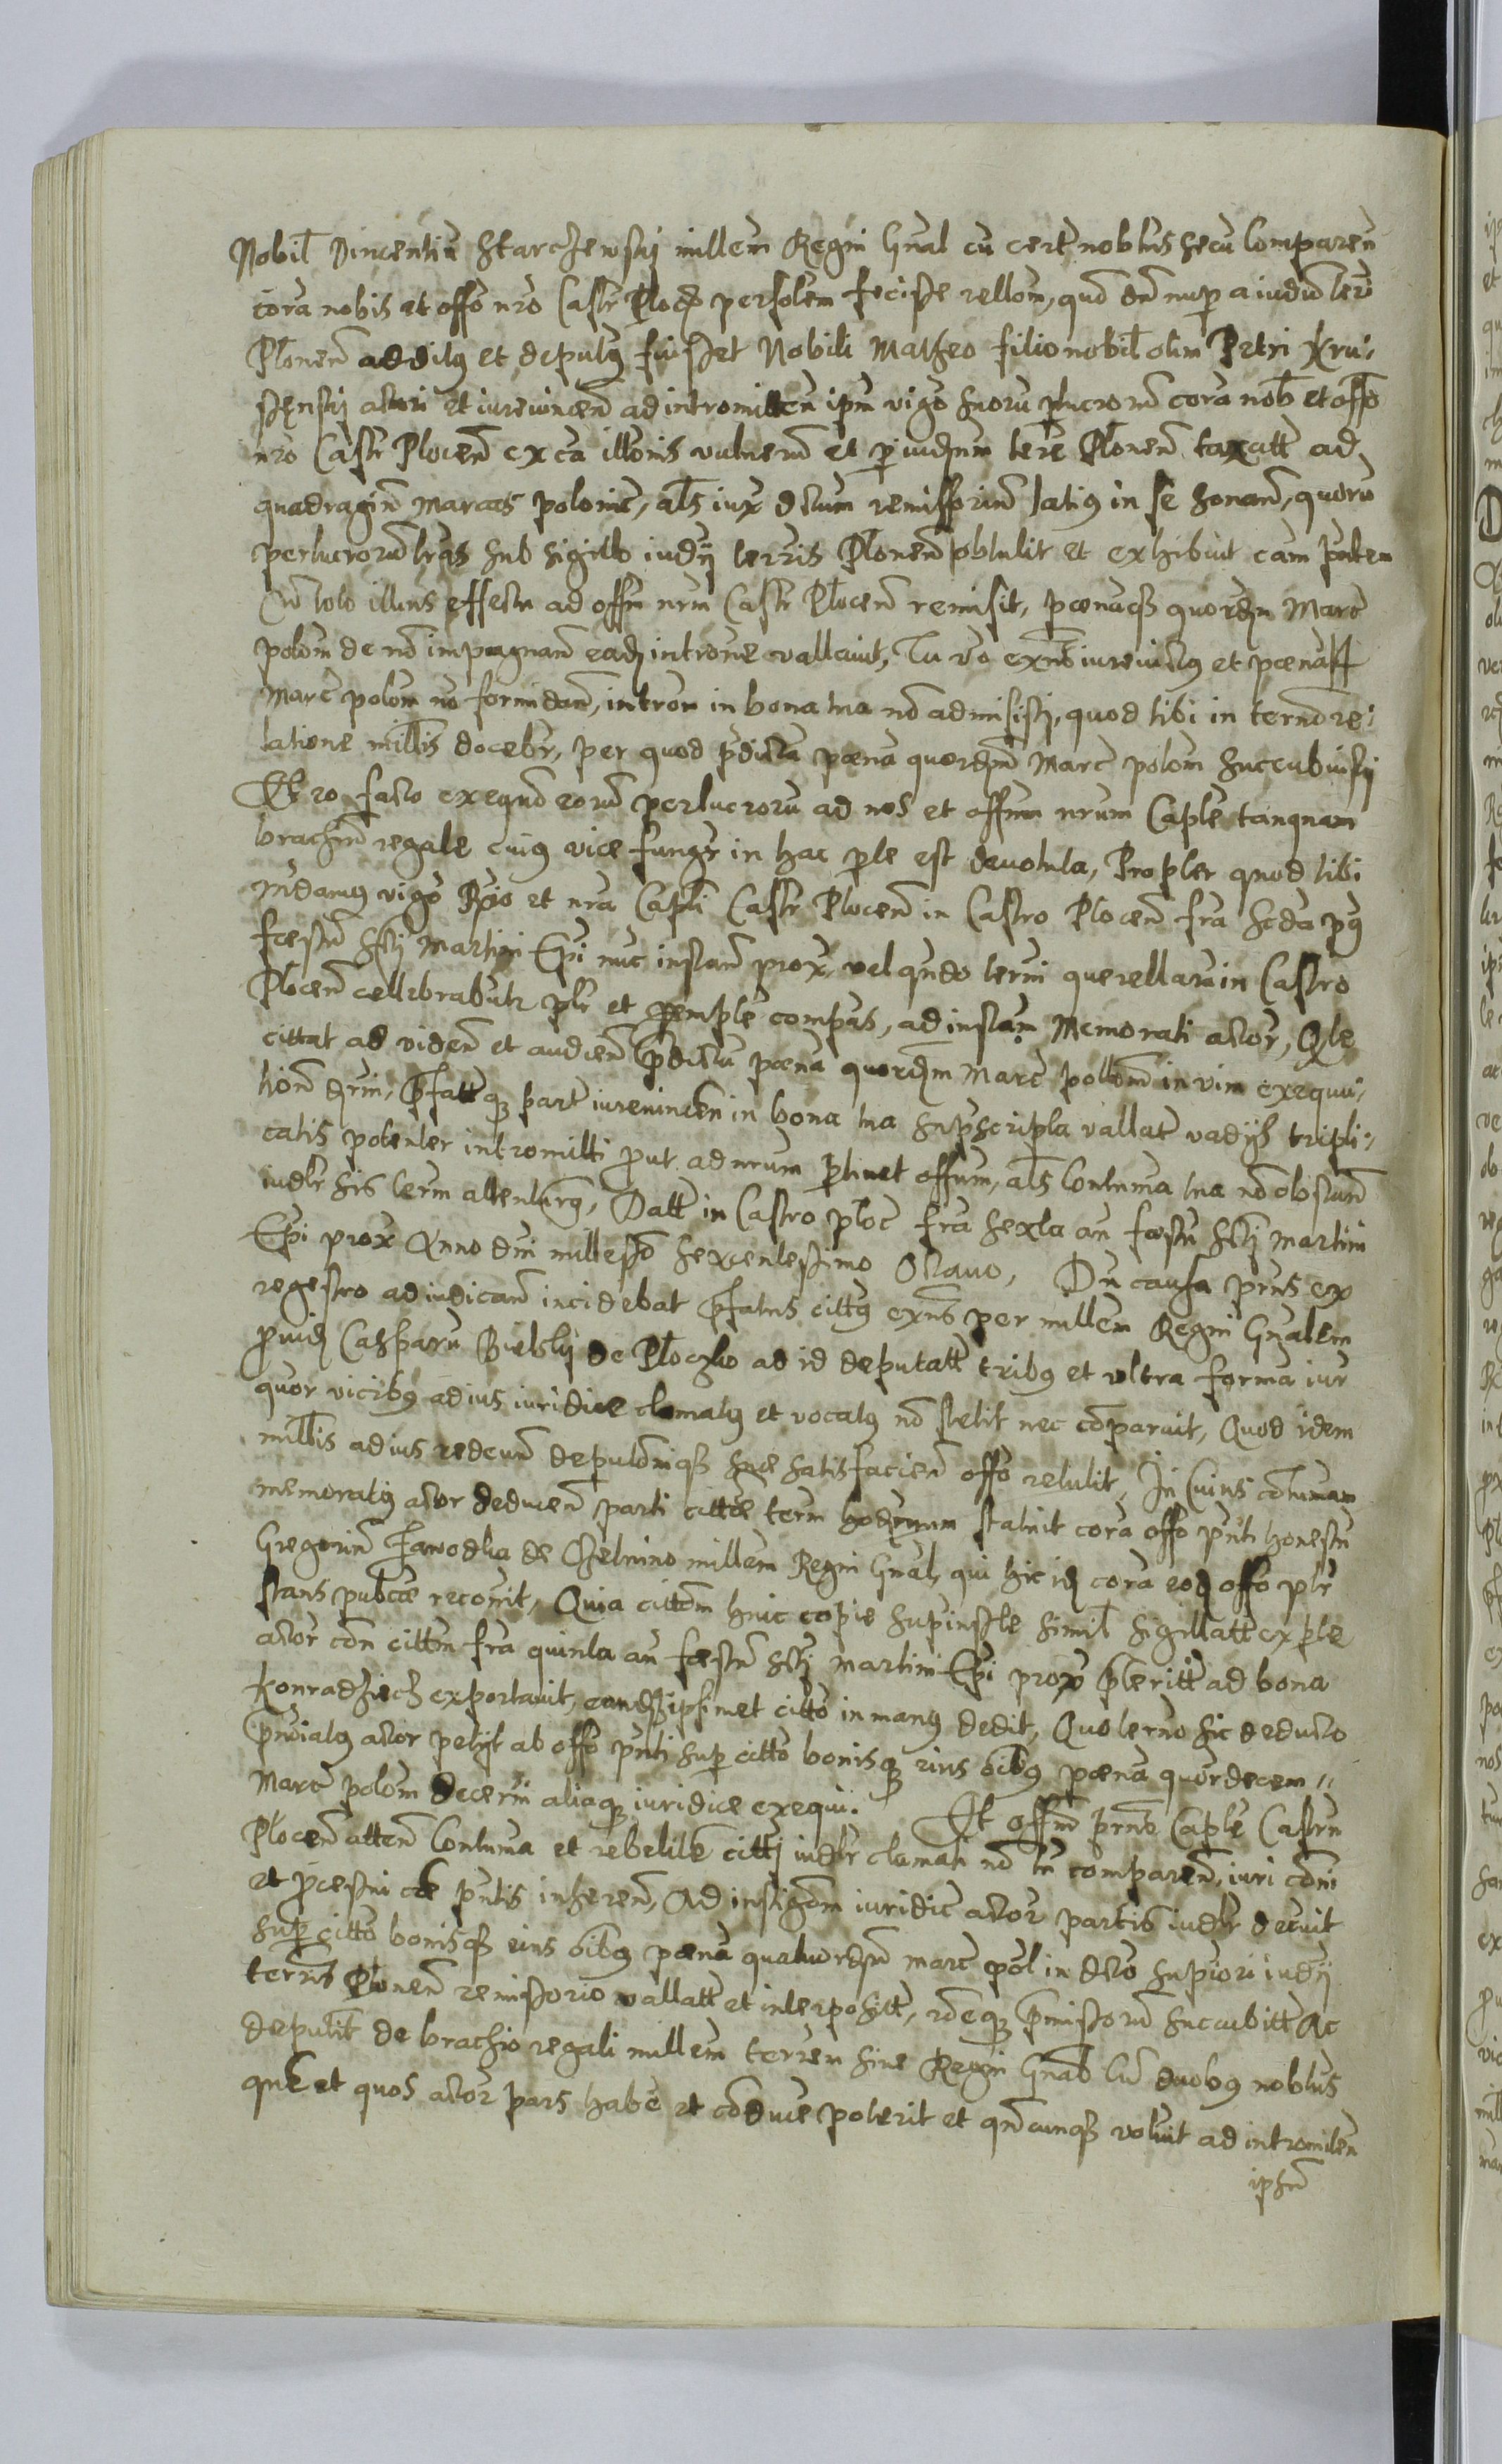 Nobil Vincentiu Starczewskj millem Regni Gnal cu cert noblus secu Comparen
cora nobis et offo nro Castr Ploc persolem fecisse rellom, quo dn nup a iudio terr
Plonen additus et deputus fuisset Nobili Matheo filio nobil olim Petri Kru-
actori et iurevincen ad intromitten ipm vigo suoru plucrorum cora nob et offo
nro Castr Plocen ex ca illonis vulnerum et p iudium terre Plonen taxatt ad
quadragin Marcas polonic, als iux dctum remissorium latius in se sonan, quoru
perlucrorum lras sub sigillo iudij terris Plonen obtulit et exhibuit cam pntem
Cu toto illius effectu ad offm nrm Castr Plocen remisit, poenaqs quordm Marc
polon de no impugnan eadj introne vallavit, Tu vo exns iurevictus et poena 14
Marc polon no formidan, introm in bona tua no admisisti, quod tibi in termo re-
latione millis docebr, per quod pdicta poena quordm Marc polon succubuisti
Et ro facto exequo eorum perlucroru ad nos et offium nrum Caple tanquam
brachiu regale cuius vice fungr in hac pte est devoluta, Propter quod tibi
mdamus vigo Rgio et nra Capli Castr Plocen in Castro Plocen fra scda pg
foestu scti Martini Epi nuc instan prox, vel qndo termi querellaru in Castro
Plocen cellebrabutr plr et pemple compas, ad instam Memorati actor, Qle
cittat ad viden et audien pdictu poena quordm Marc pollon in vim exequu-
tion dcrni, pfattqz part iurevincen in bona tua supscripta vallat vadijs tripli-
catis potenter intromitti put ad nrum ptinet offium, als Contuma tua no obstan
iudlr sis term attenturs, Datt in Castro ploc fra sexta an foestu scti Martini
Epi prox Anno dni millesso sexcentessimo Octavo, Dn causa prns ex
regestro ad iudican incidebat pfatus cittus exns per millem Regni Gnalem
pvid Casparu Bielskj de Ploczko ad id deputatt tribus et ultra forma iur
quor vicibus ad ius iuridice clamatus et vocatus no stetit nec comparuit, Quod idem
millis ad ius redeun deputoniqs suae satisfacien offo retulit, In Cuius contuman
memoratus actor deducen parti cittae term hodrnum statuit cora offo pnti honestu
Gregoriu de Chelmno millem Regni Gnal, qui hic id cora eod offo plr
stans publce recovit, Quia cittom huic copie supinste simil sigillatt ex pte
actor con cittm fra quinta an foestu scti Martini Epi prox pteritt ad bona
Konradziecz exportavit, eandqs ipsimet citto in manus dedit, Quo termo sic deducto
pnoiatus actor petijt ab offo pnti sup citto bonisqz eius oibus poena quordecem
Marc polon decerni aliaqz iuridice exequi. Et offm prns Caple Castrn
Plocen atten Contuma et rebelile citti iudlr clamati no tn comparen, iuri coni
et pcessui cae pntis inheren, Ad instigom iuridic actor partis iudlr decrvit
sup citto bonisqs eius oibus poena quatuordm marc pol in dcto supiori iudij
terris Plonen remissorio vallatt et interposittt, roeqz pmissorum succubitt Ac
deputat de brachio regali millem terren sive Regni Gnal Cu duobus noblus
que et quos actor pars habe et conduce poterit et qncunqs voluit ad intromiten
ipsum